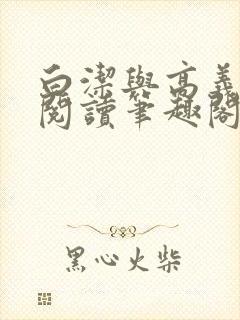 白潔與高義
閱讀筆趣閣
黑心火柴